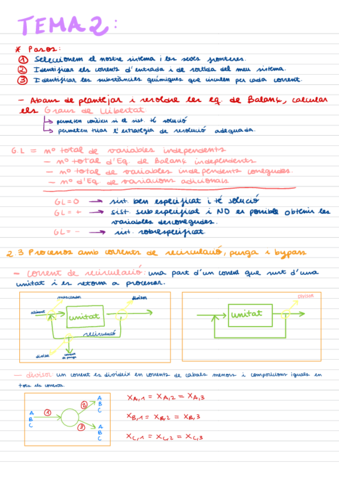 TEMA 2:
* Pasos:
① Seleccionem el nostre sistema i les seves fronteres.
② Identificar els corrents d'entrada i de sortida del meu sistema.
③ Identificar les substàncies químiques que circulen per cada corrent.
- Abans de plantejar i resoldre les eq. de Balanç, calcular
els Graus de llibertat
↳ permeten veure si el sist. té solució
↳ permeten triar l'estratègia de resolució adequada.
GL = nº total de variables independents
- nº total d'Eq. de Balanç independents
- nº total de variables independents conegudes
- nº d'Eq de variacions adicionals
GL = 0 → sist. ben especificat i té solució
GL = + → sist. subespecificat i NO és possible obtenir les
variables desconegudes.
GL = - → sist. sobreespecificat
2.3 Processos amb corrents de recirculació, purga i bypass
- Corrent de recirculació: una part d'un corrent que surt d'una
unitat i es retorna a processar.
mesclador
divisor
aliment
unitat
recirculació
divisor
purga
divisor
unitat
- divisor: un corrent es divideix en corrents de cabals menors i composicions iguals en
tots els corrents
A
B
C
①
②
③
A
B
C
A
B
C
XA,1 = XA,2 = XA,3
XB,1 = XB,2 = XB,3
XC,1 = XC,2 = XC,3